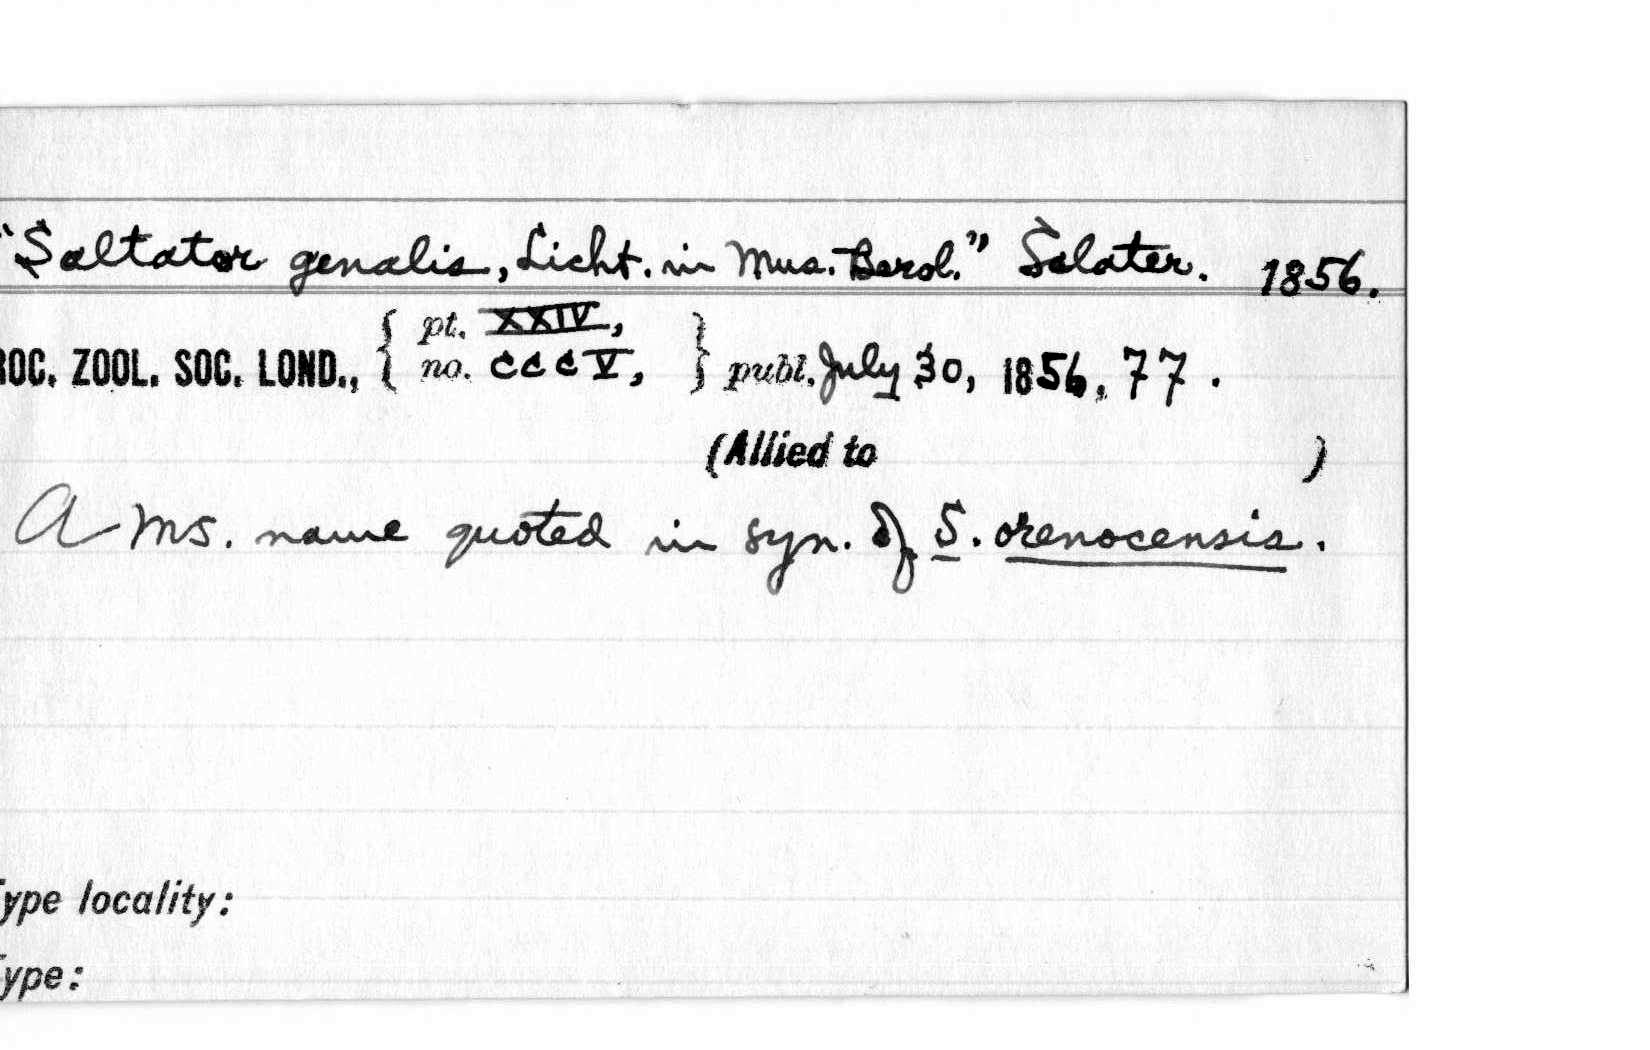 "Saltator genalis, Licht. in Mus. Berol." Sclater. 1856.
ROC. ZOOL. SOC. LOND., { pt. XXIV, no. cccV, } publ. July 30, 1856, 77.
(Allied to )
A MS. name quoted in syn. of S. orenocensis.
ype locality:
ype: